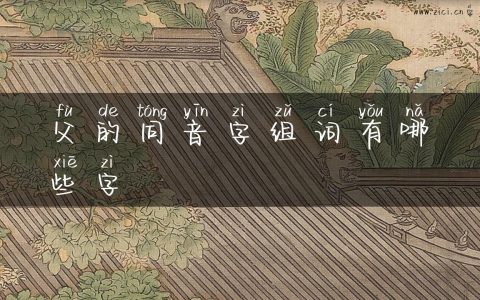 www.zici.cn
fù de tóng yīn zì zǔ cí yǒu nǎ
父的同音字组词有哪
xiē zì
些字